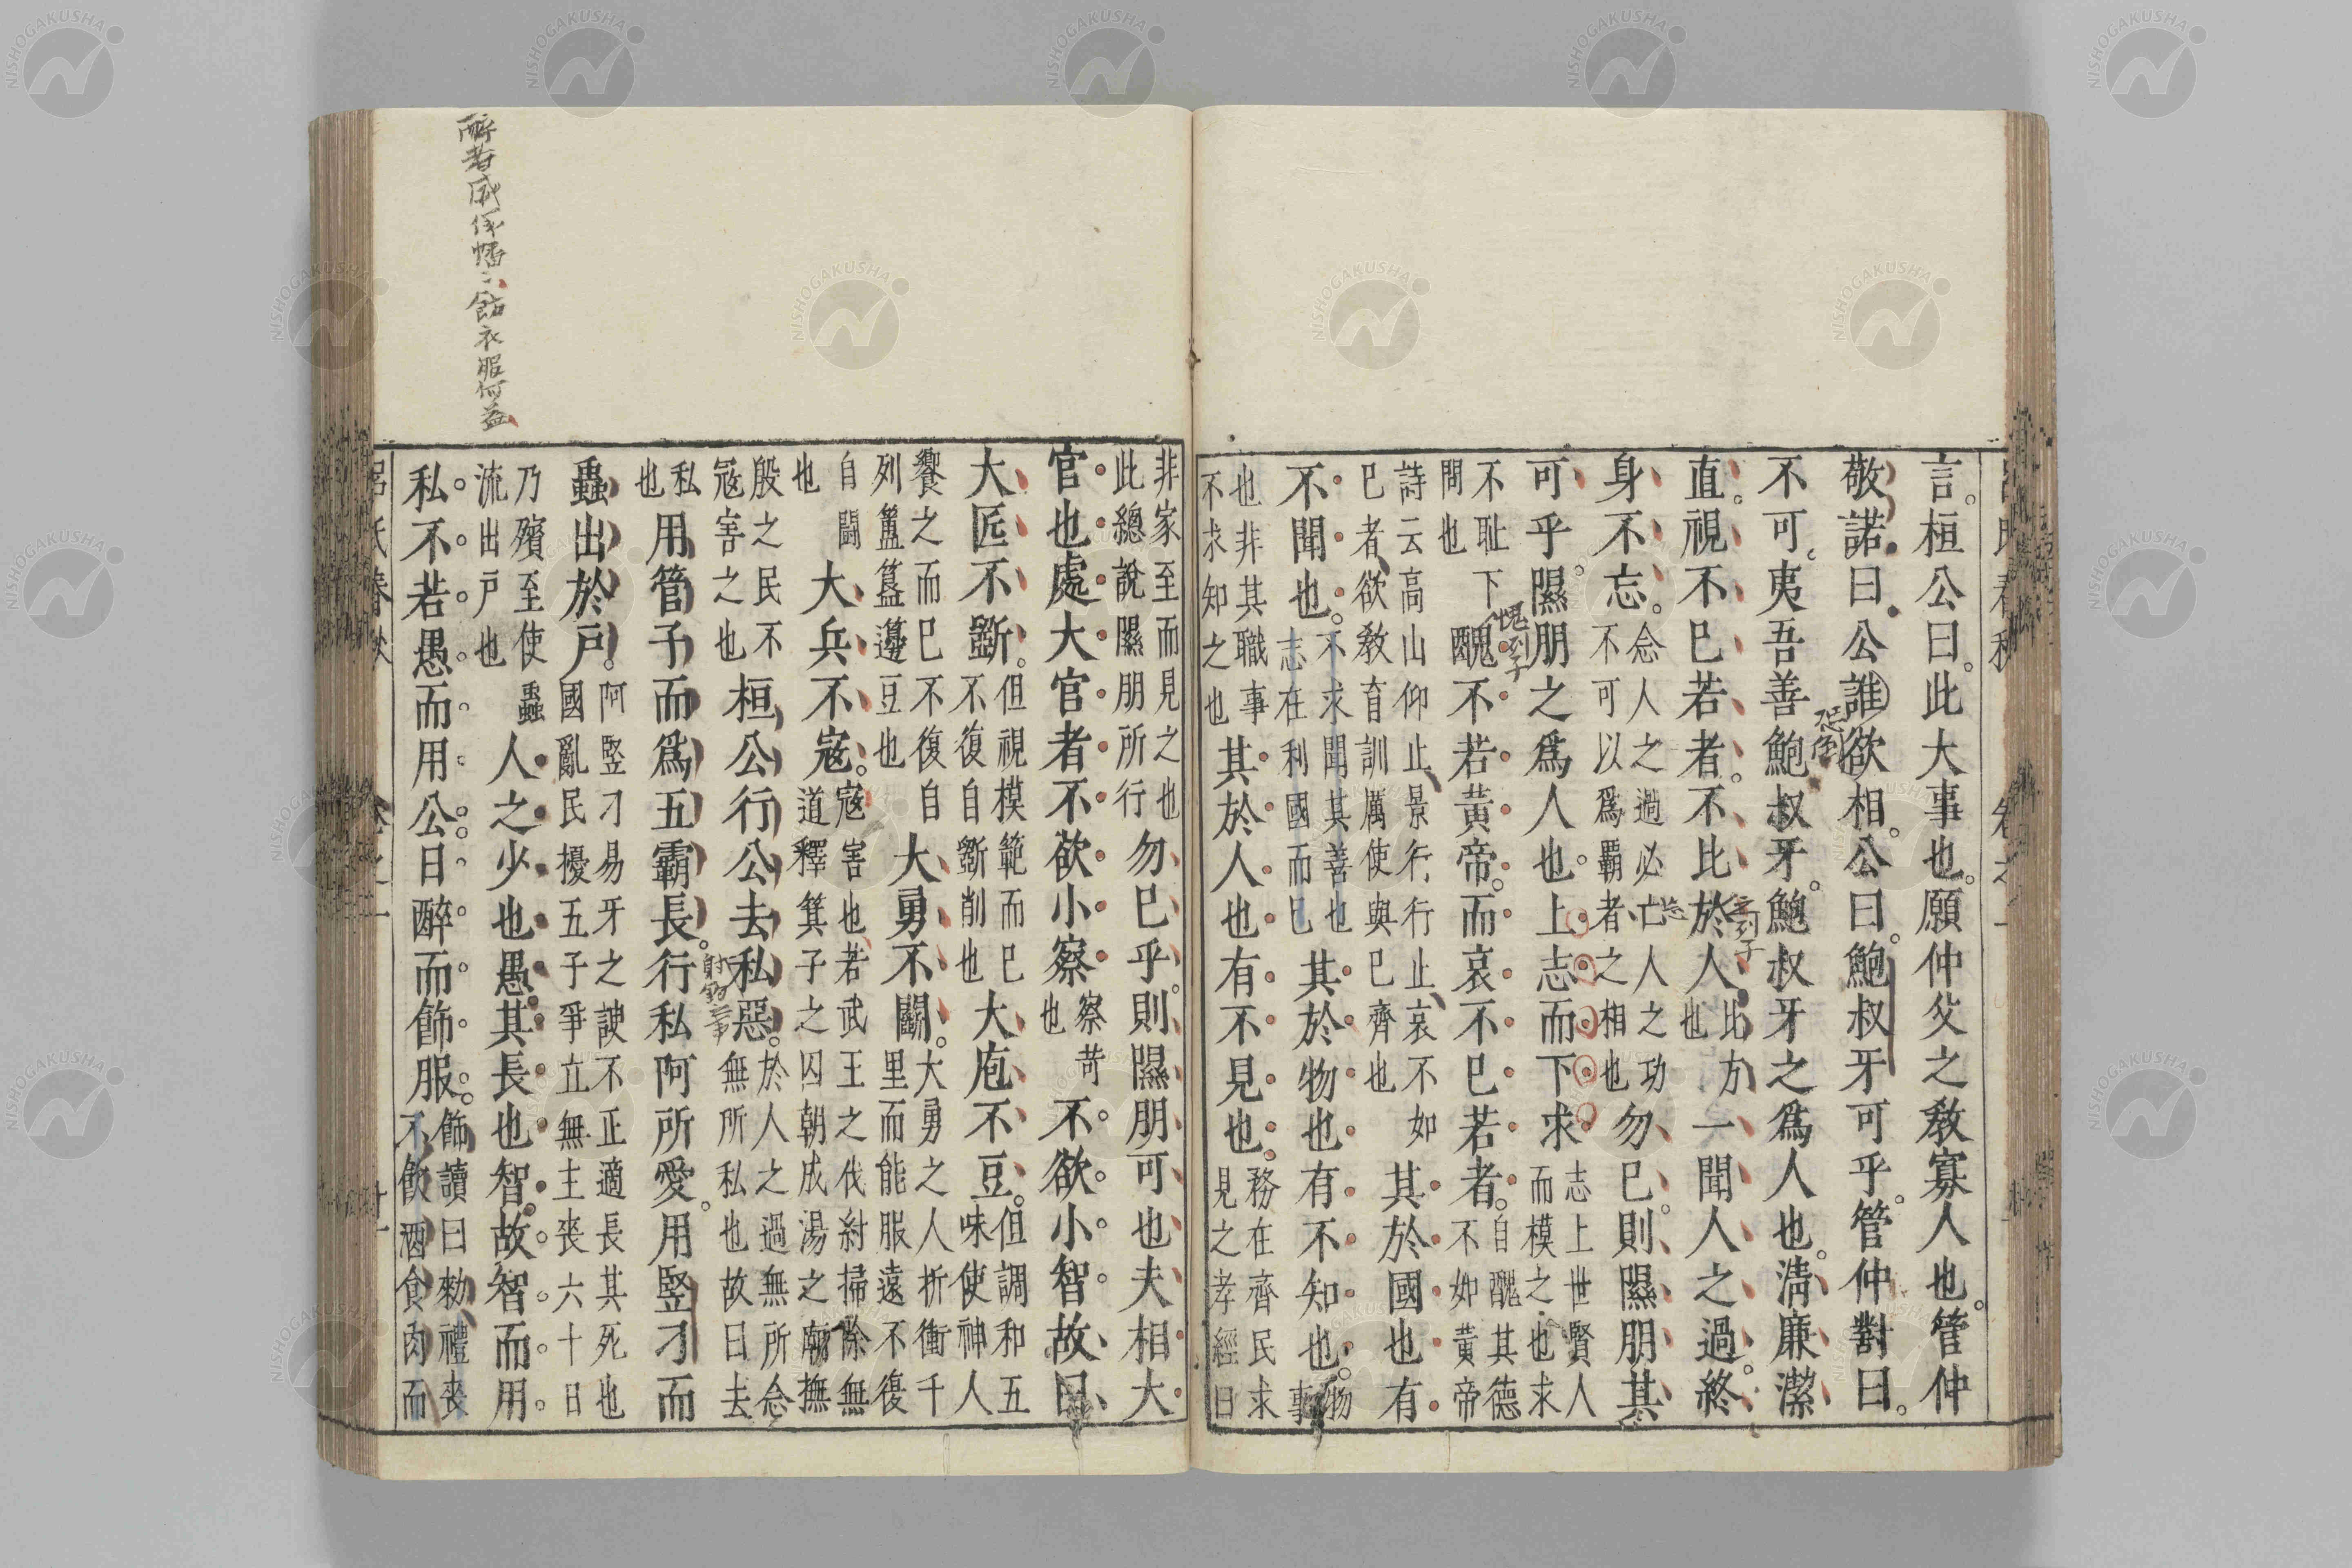 言桓公曰此大事也願仲父之教寡人也管仲
敬諾曰公誰欲相公曰鮑叔牙可乎管仲對曰
恐倒
不可夷吾善鮑叔牙鮑叔牙之爲人也淸廉潔
直視不已若者不比於人比方也一聞人之過終
列子
身不忘念人之過必亡人之功不可以爲霸者之相也勿已則隰朋其
可乎隰朋之爲人也上志而下求志上世賢人而模之也求
愧列子
不耻下問也醜不若黃帝而哀不已若者自醜其德不如黃帝
詩云高山仰止景行行止哀不如已者欲教育訓厲使與已齊也其於國也有
不聞也不求聞其善也志在利國而已其於物也有不知也物事
也非其職事不求知之也其於人也有不見也務在齊民求見之孝經曰
非家至而見之也此總說隰朋所行勿已乎則隰朋可也夫相大
官也處大官者不欲小察察苛也不欲小智故曰
大匠不斲但視模範而已不復自斲削也大庖不豆但調和五味使神人
饗之而已不復自列簠簋籩豆也大勇不鬬大勇之人折衝千里而能服遠不復
自鬪也大兵不寇寇害也若武王之伐紂掃除無道釋箕子之囚朝成湯之廟撫
殷之民不寇害之也桓公行公去私惡於人之過無所念無所私也故曰去
射鉤之事
私也用管子而爲五霸長行私阿所愛用豎刁而
蟲出於戶阿豎刁易牙之諛不正適長其死也國亂民擾五子爭立無主喪六十日
乃殯至使蟲流出戶也人之少也愚其長也智故智而用
私不若愚而用公日醉而飾服飾讀曰勑禮喪不飲酒食肉而
呂氏春秋 卷之一
醉者威儀幡〻飾衣服何益
NISHOGAKUSHA